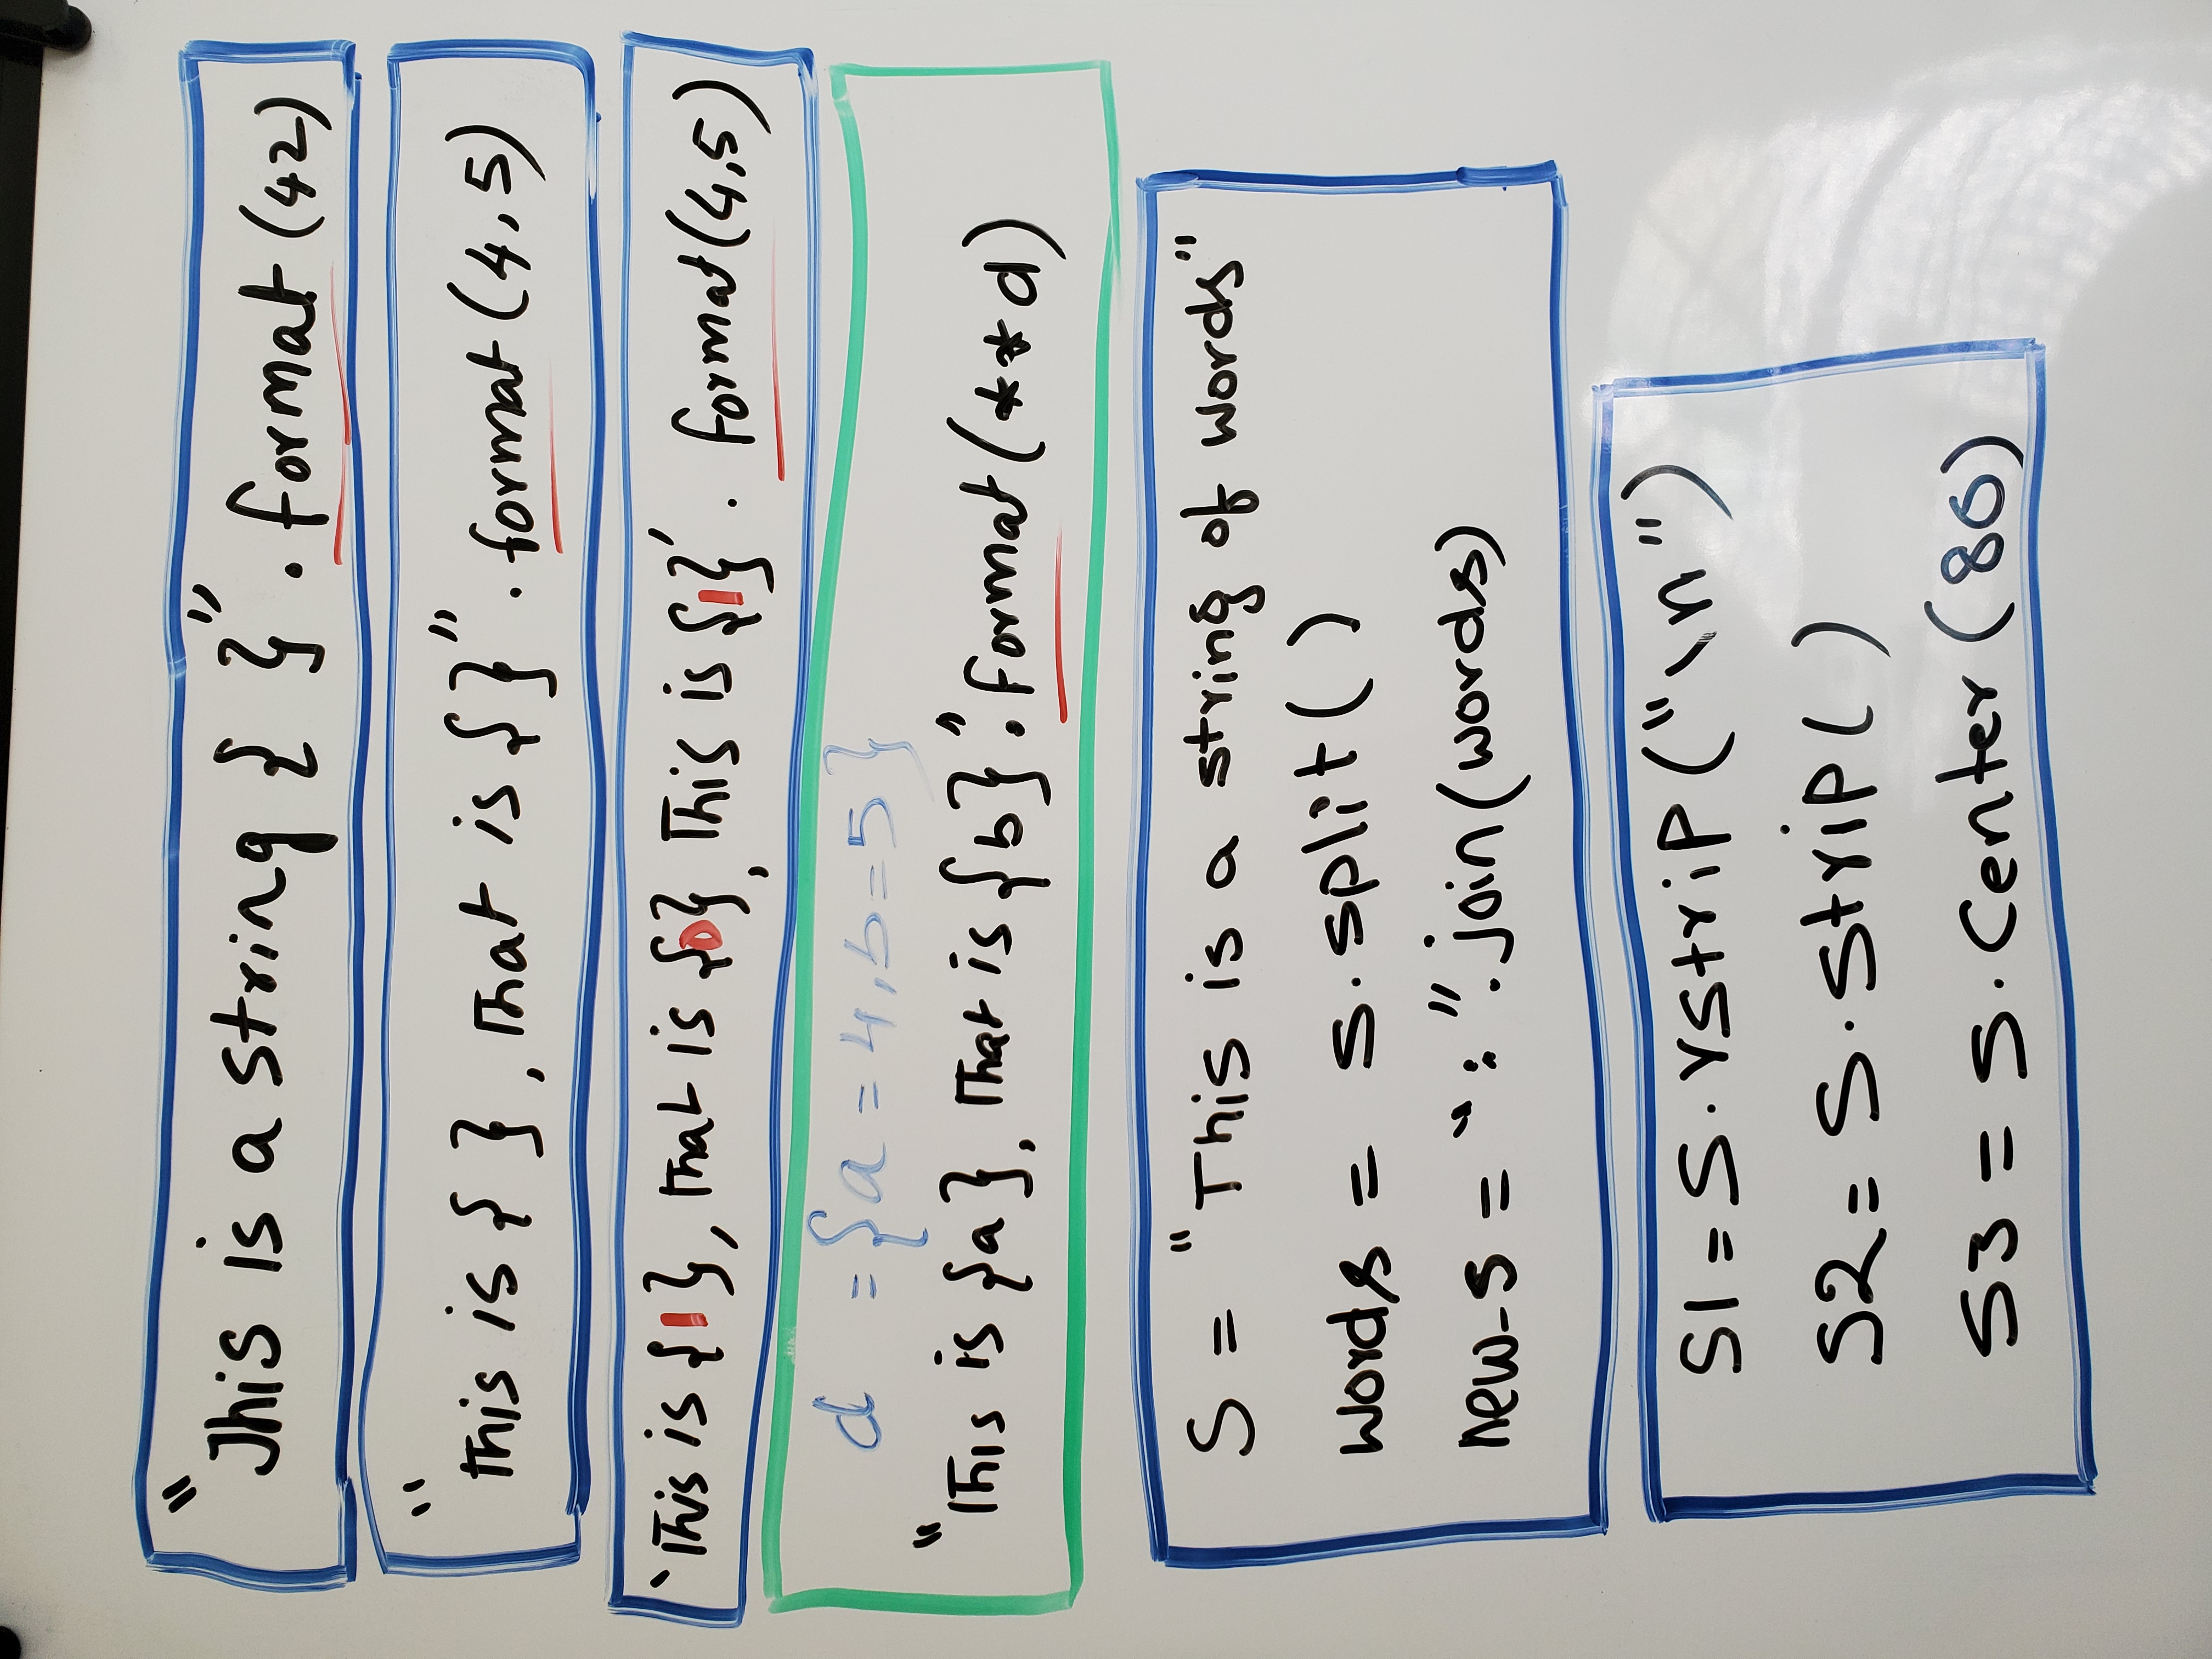 "This is a string { }".format(42)
"This is { }, That is { }".format(4,5)
'This is {1}, That is {0}, This is {1}'.format(4,5)
d = {a = 4, b = 5}
"This is {a}, That is {b}".format(**d)
S = "This is a string of words"
words = s.split( )
new_s = ":".join(words)
S1 = S.rstrip("\n")
S2 = S.strip( )
S3 = S.center(80)